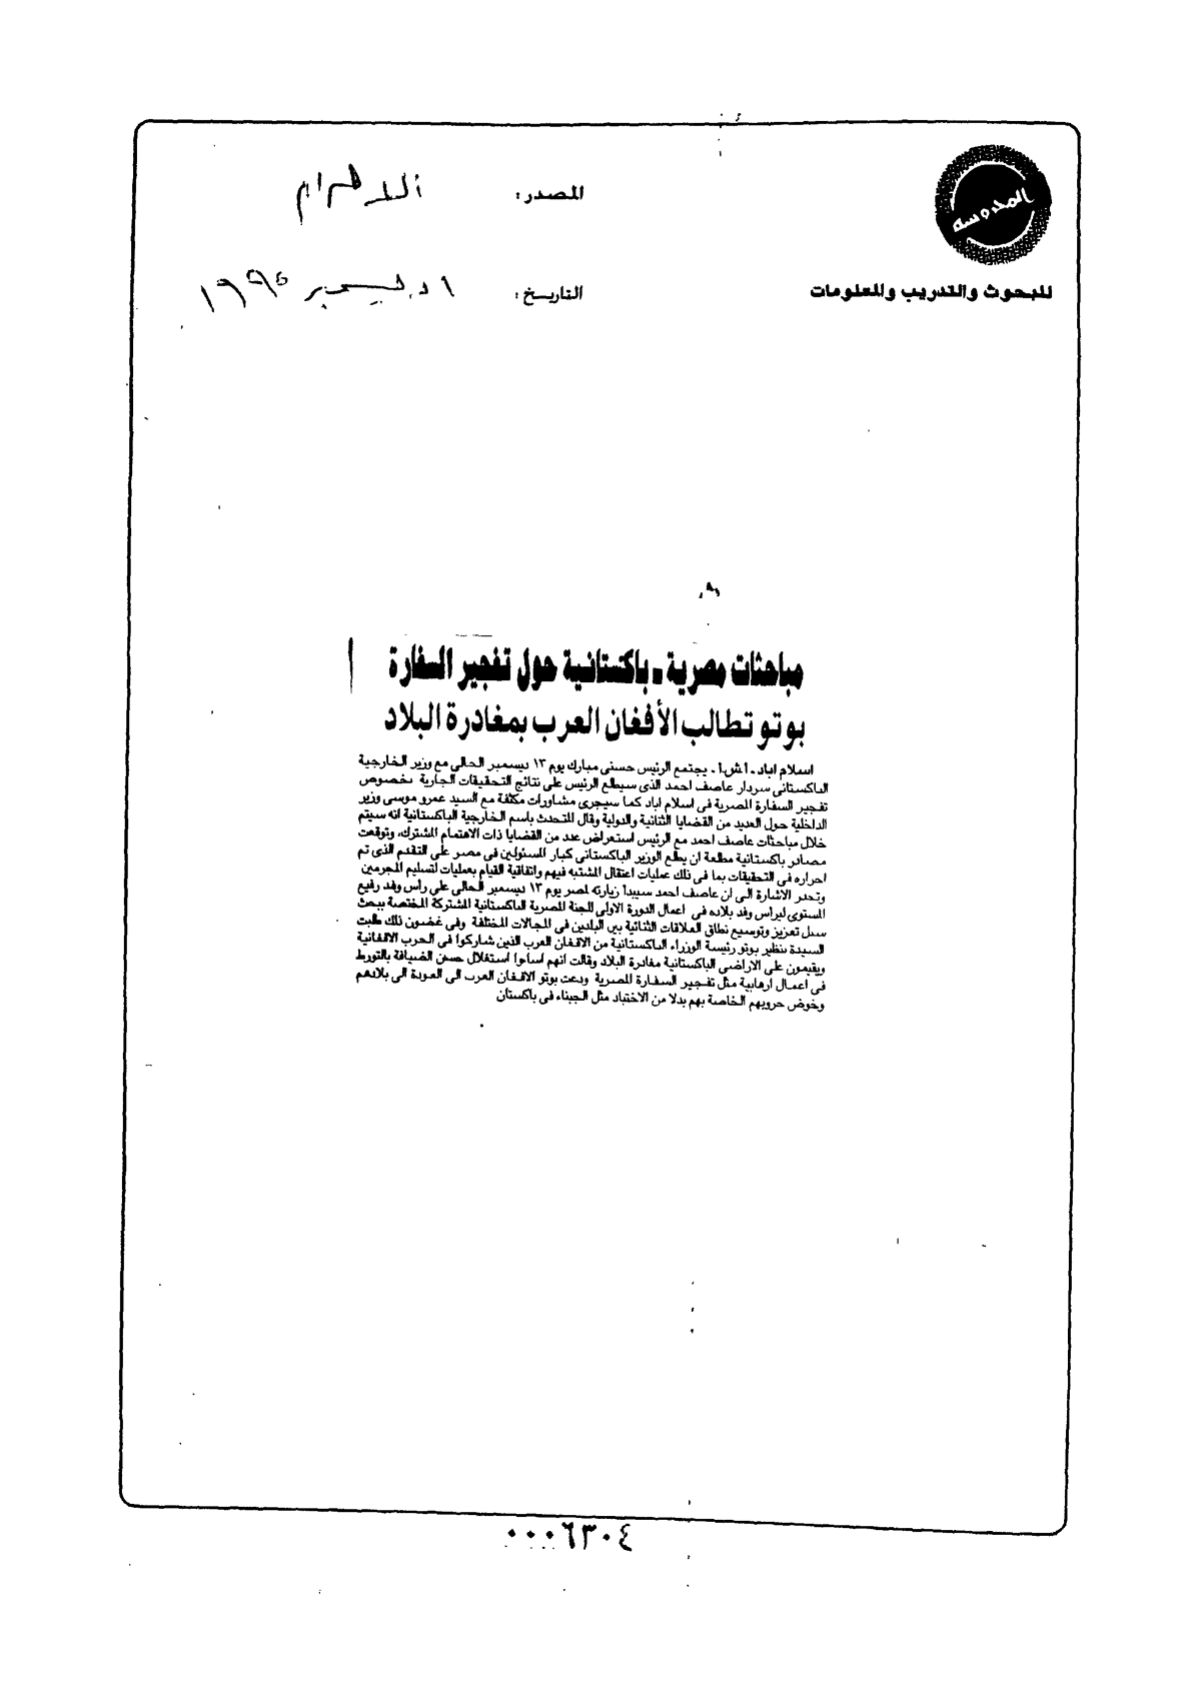 المدوسه
للبحوث والتدريب والمعلومات
المصدر: الأهرام
التاريخ: ١ ديسمبر ١٩٩٥
مباحثات مصرية - باكستانية حول تفجير السفارة
بوتو تطالب الأفغان العرب بمغادرة البلاد
اسلام اباد - أ.ش.أ - يجتمع الرئيس حسنى مبارك يوم ١٣ ديسمبر الحالى مع وزير الخارجية
الباكستانى سردار عاصف احمد الذى سيطلع الرئيس على نتائج التحقيقات الجارية بخصوص
تفجير السفارة المصرية فى اسلام اباد كما سيجرى مشاورات مكثفة مع السيد عمرو موسى وزير
الداخلية حول العديد من القضايا الثنائية والدولية وقال المتحدث باسم الخارجية الباكستانية انه سيتم
خلال مباحثات عاصف احمد مع الرئيس استعراض عدد من القضايا ذات الاهتمام المشترك، وتوقعت
مصادر باكستانية مطلعة ان يطلع الوزير الباكستانى كبار المسئولين فى مصر على التقدم الذى تم
احرازه فى التحقيقات بما فى ذلك عمليات اعتقال المشتبه فيهم واتفاقية القيام بعمليات لتسليم المجرمين
وتجدر الاشارة الى ان عاصف احمد سيبدأ زيارته لمصر يوم ١٣ ديسمبر الحالى على رأس وفد رفيع
المستوى ليرأس وفد بلاده فى اعمال الدورة الاولى للجنة المصرية الباكستانية المشتركة المختصة ببحث
سبل تعزيز وتوسيع نطاق العلاقات الثنائية بين البلدين فى المجالات المختلفة وفى غضون ذلك طلبت
السيدة بنظير بوتو رئيسة الوزراء الباكستانية من الافغان العرب الذين شاركوا فى الحرب الافغانية
ويقيمون على الاراضى الباكستانية مغادرة البلاد وقالت انهم اساءوا استغلال حسن الضيافة بالتورط
فى اعمال ارهابية مثل تفجير السفارة المصرية ودعت بوتو الافغان العرب الى العودة الى بلادهم
وخوض حروبهم الخاصة بهم بدلا من الاختباء مثل الجبناء فى باكستان
٠٠٠٦٣٠٤